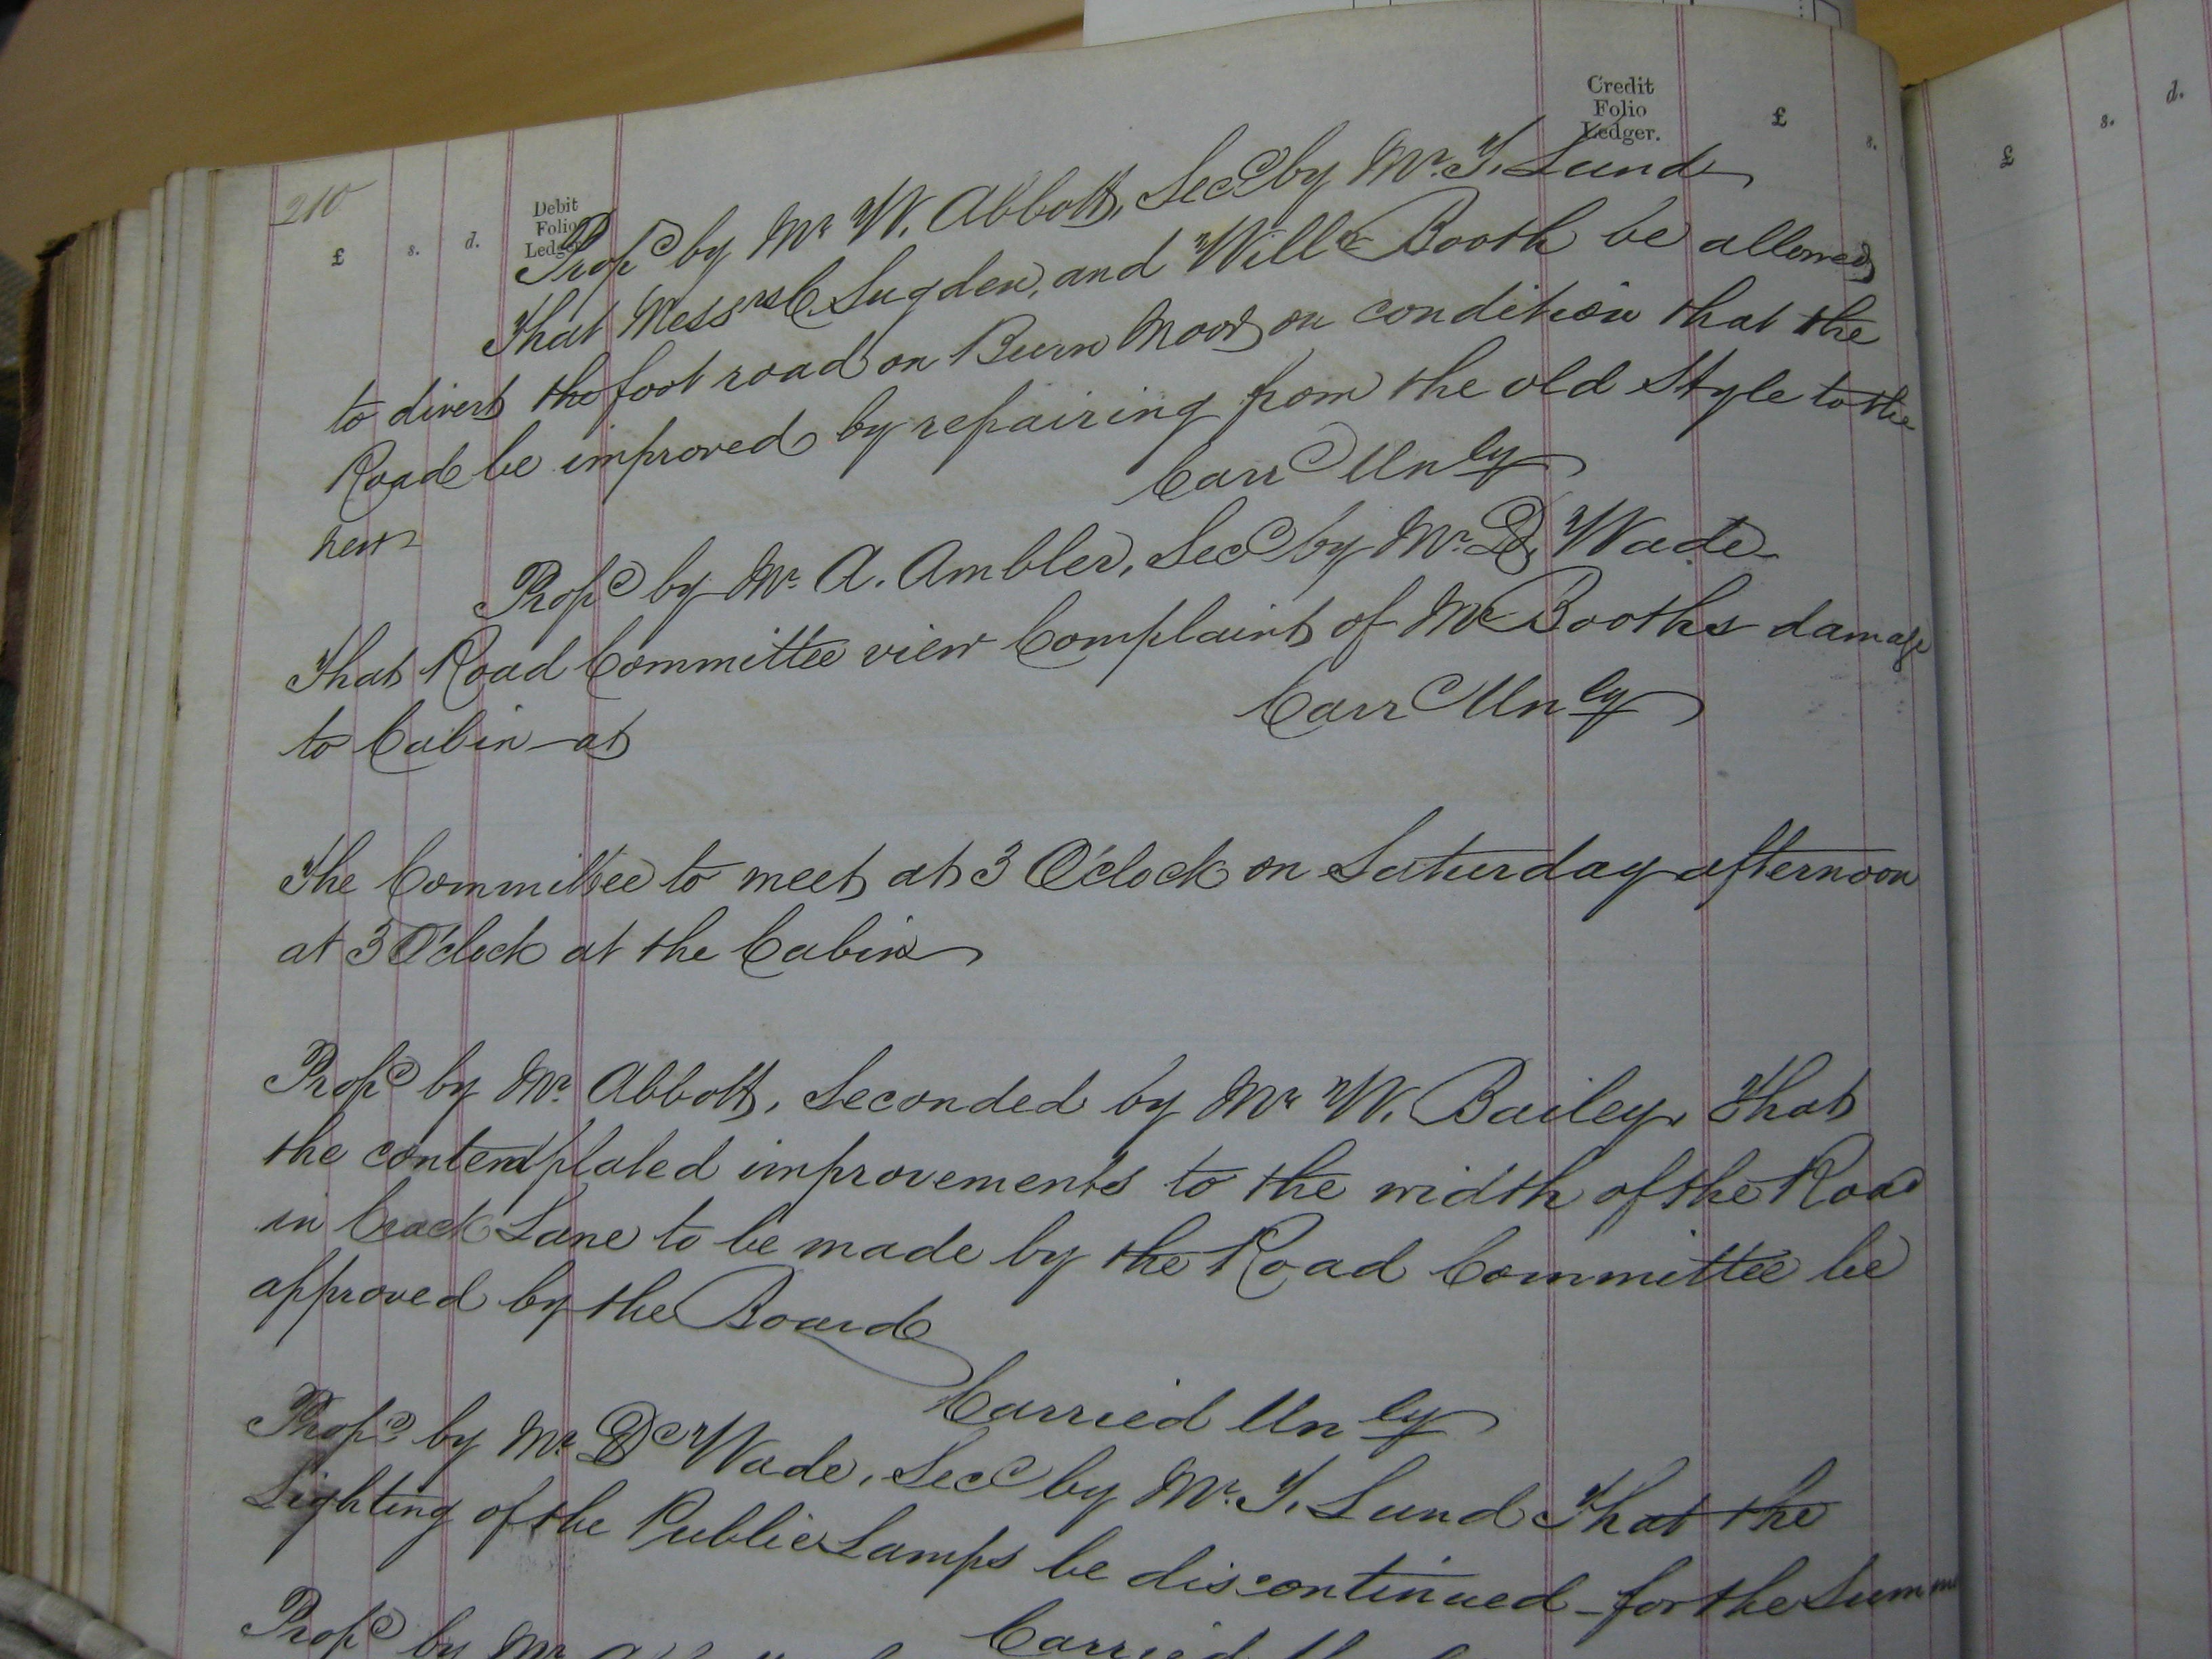 Credit
Folio
Ledger.
£ s.
£ s. d.
210
Debit
Folio
Ledger
£ s. d.
Propd by Mr W. Abbott, Secd by Mr T. Lund
That Messrs C Sugden, and Willm Booth be allowed
to divert the foot road on Burn Moor on condition that the
Road be improved by repairing from the old Style to the
new
Carrd Unly
Propd by Mr A. Ambler, Secd by Mr D. Wade
That Road Committee view Complaint of Mr Booths damage
to Cabin at
Carrd Unly
The Committee to meet at 3 O'clock on Saturday afternoon
at 3 O'clock at the Cabin
Propd by Mr Abbott, Seconded by Mr W. Bailey, That
the contemplated improvements to the width of the Road
in back Lane to be made by the Road Committee be
approved by the Board
Carried Unly
Propd by Mr D Wade, Secd by Mr T. Lund That the
Lighting of the Public Lamps be discontinued for the Summe
Carried
Propd by Mr